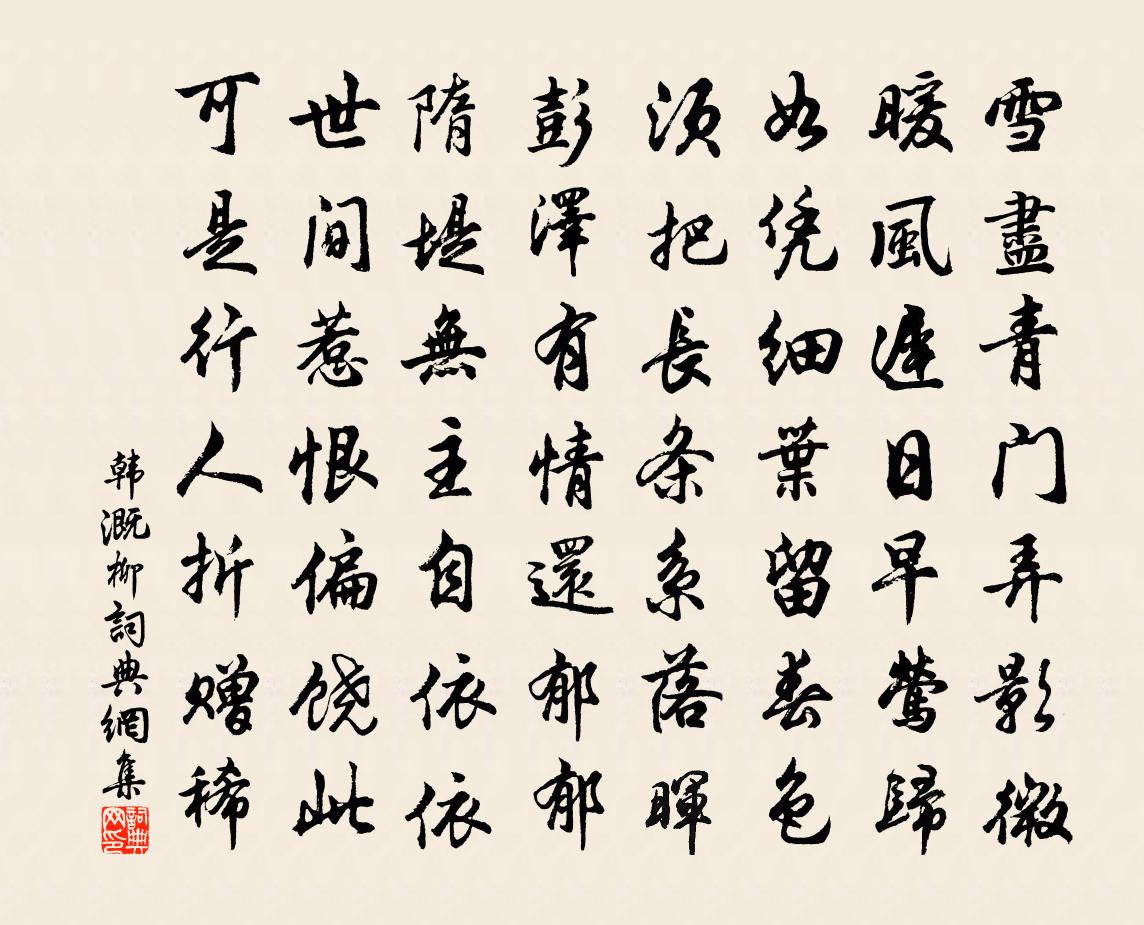 雪盡青门弄影微
暖風遲日早鶯歸
如凭細葉留春色
須把長条系落暉
彭澤有情還郁郁
隋堤無主自依依
世间惹恨偏饶此
可是行人折赠稀
韩溉柳詞典網集
詞典网印